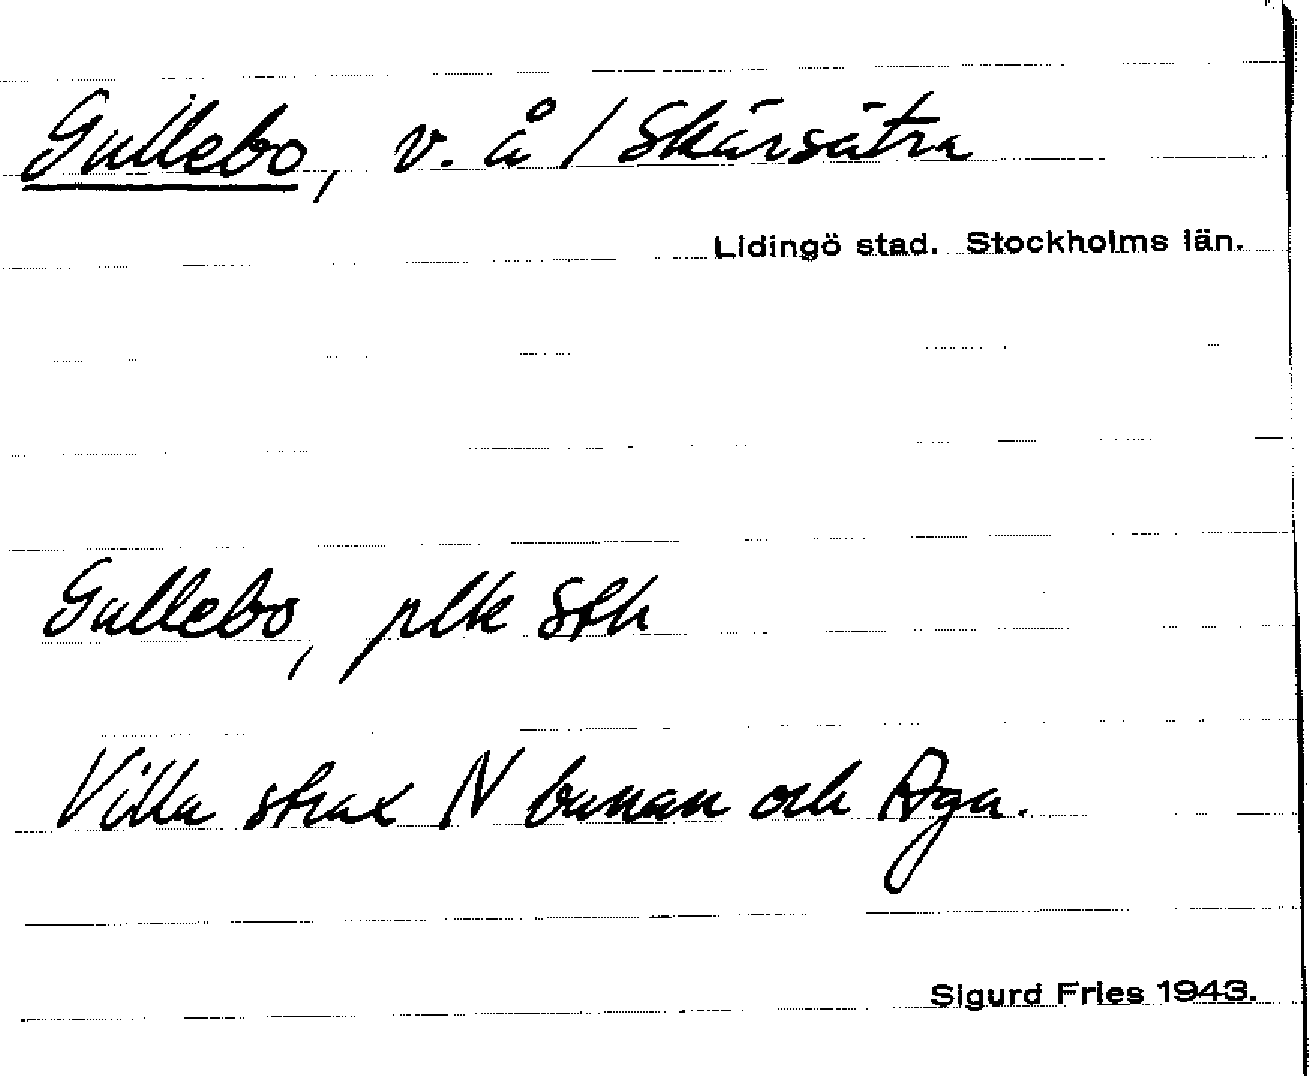 Gullebo, v. å / Skärsätra
Lidingö stad. Stockholms län.
Gullebo, plk Sth
Villa strax N banan och Aga.
Sigurd Fries 1943.